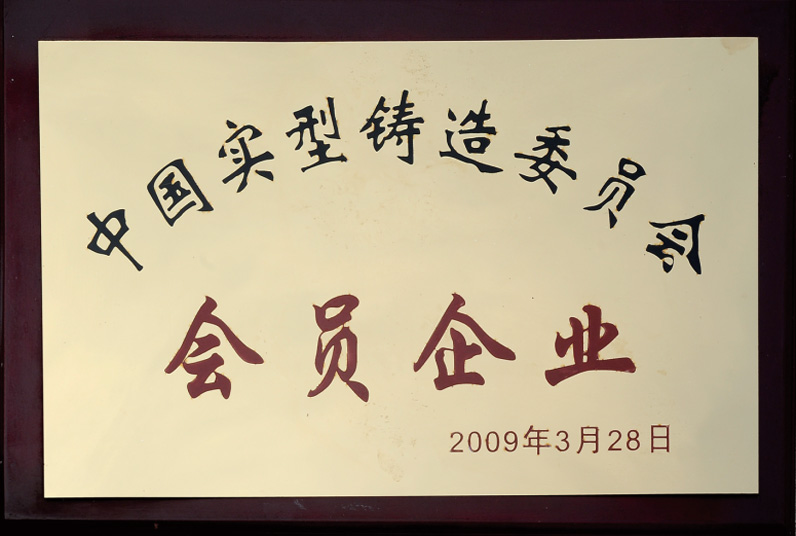 中国实型铸造委员会
会员企业
2009年3月28日